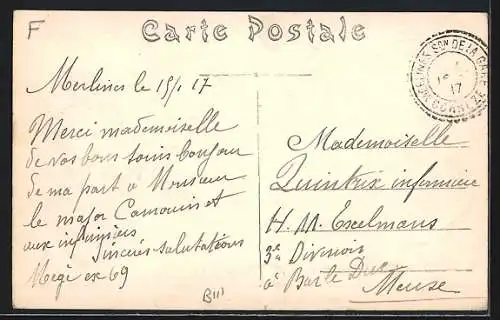 F
Carte Postale
MERLINES Son DE LA GARE
17
CORREZE
Merlines le 15/1 17
Merci mademoiselle
de vos bons soins bonjour
de ma part a Monsieur
le major Camouin et
aux infirmiers
sincères salutations
Megi ex 69
Mademoiselle
Quintrix infirmière
H. M. Excelmans
3e Division
à Bar le Duc
Meuse
B111